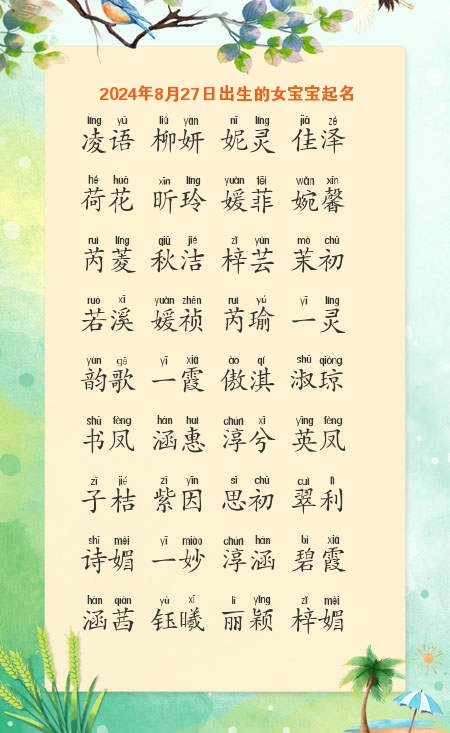 2024年8月27日出生的女宝宝起名
líng yǔ liǔ yán nī líng jiā zé
凌语 柳妍 妮灵 佳泽
hé huā xīn líng yuàn fēi wǎn xīn
荷花 昕玲 媛菲 婉馨
ruì líng qiū jié zǐ yún mò chū
芮菱 秋洁 梓芸 茉初
ruò xī yuàn zhēn ruì yú yī líng
若溪 媛祯 芮瑜 一灵
yùn gē yī xiá ào qí shū qióng
韵歌 一霞 傲淇 淑琼
shū fèng hán huì chún xī yīng fèng
书凤 涵惠 淳兮 英凤
zǐ jié zǐ yīn sī chū cuì lì
子桔 紫因 思初 翠利
shī mèi yī miào chún hán bì xiá
诗媚 一妙 淳涵 碧霞
hán qiàn yù xī lì yǐng zǐ mèi
涵茜 钰曦 丽颖 梓媚